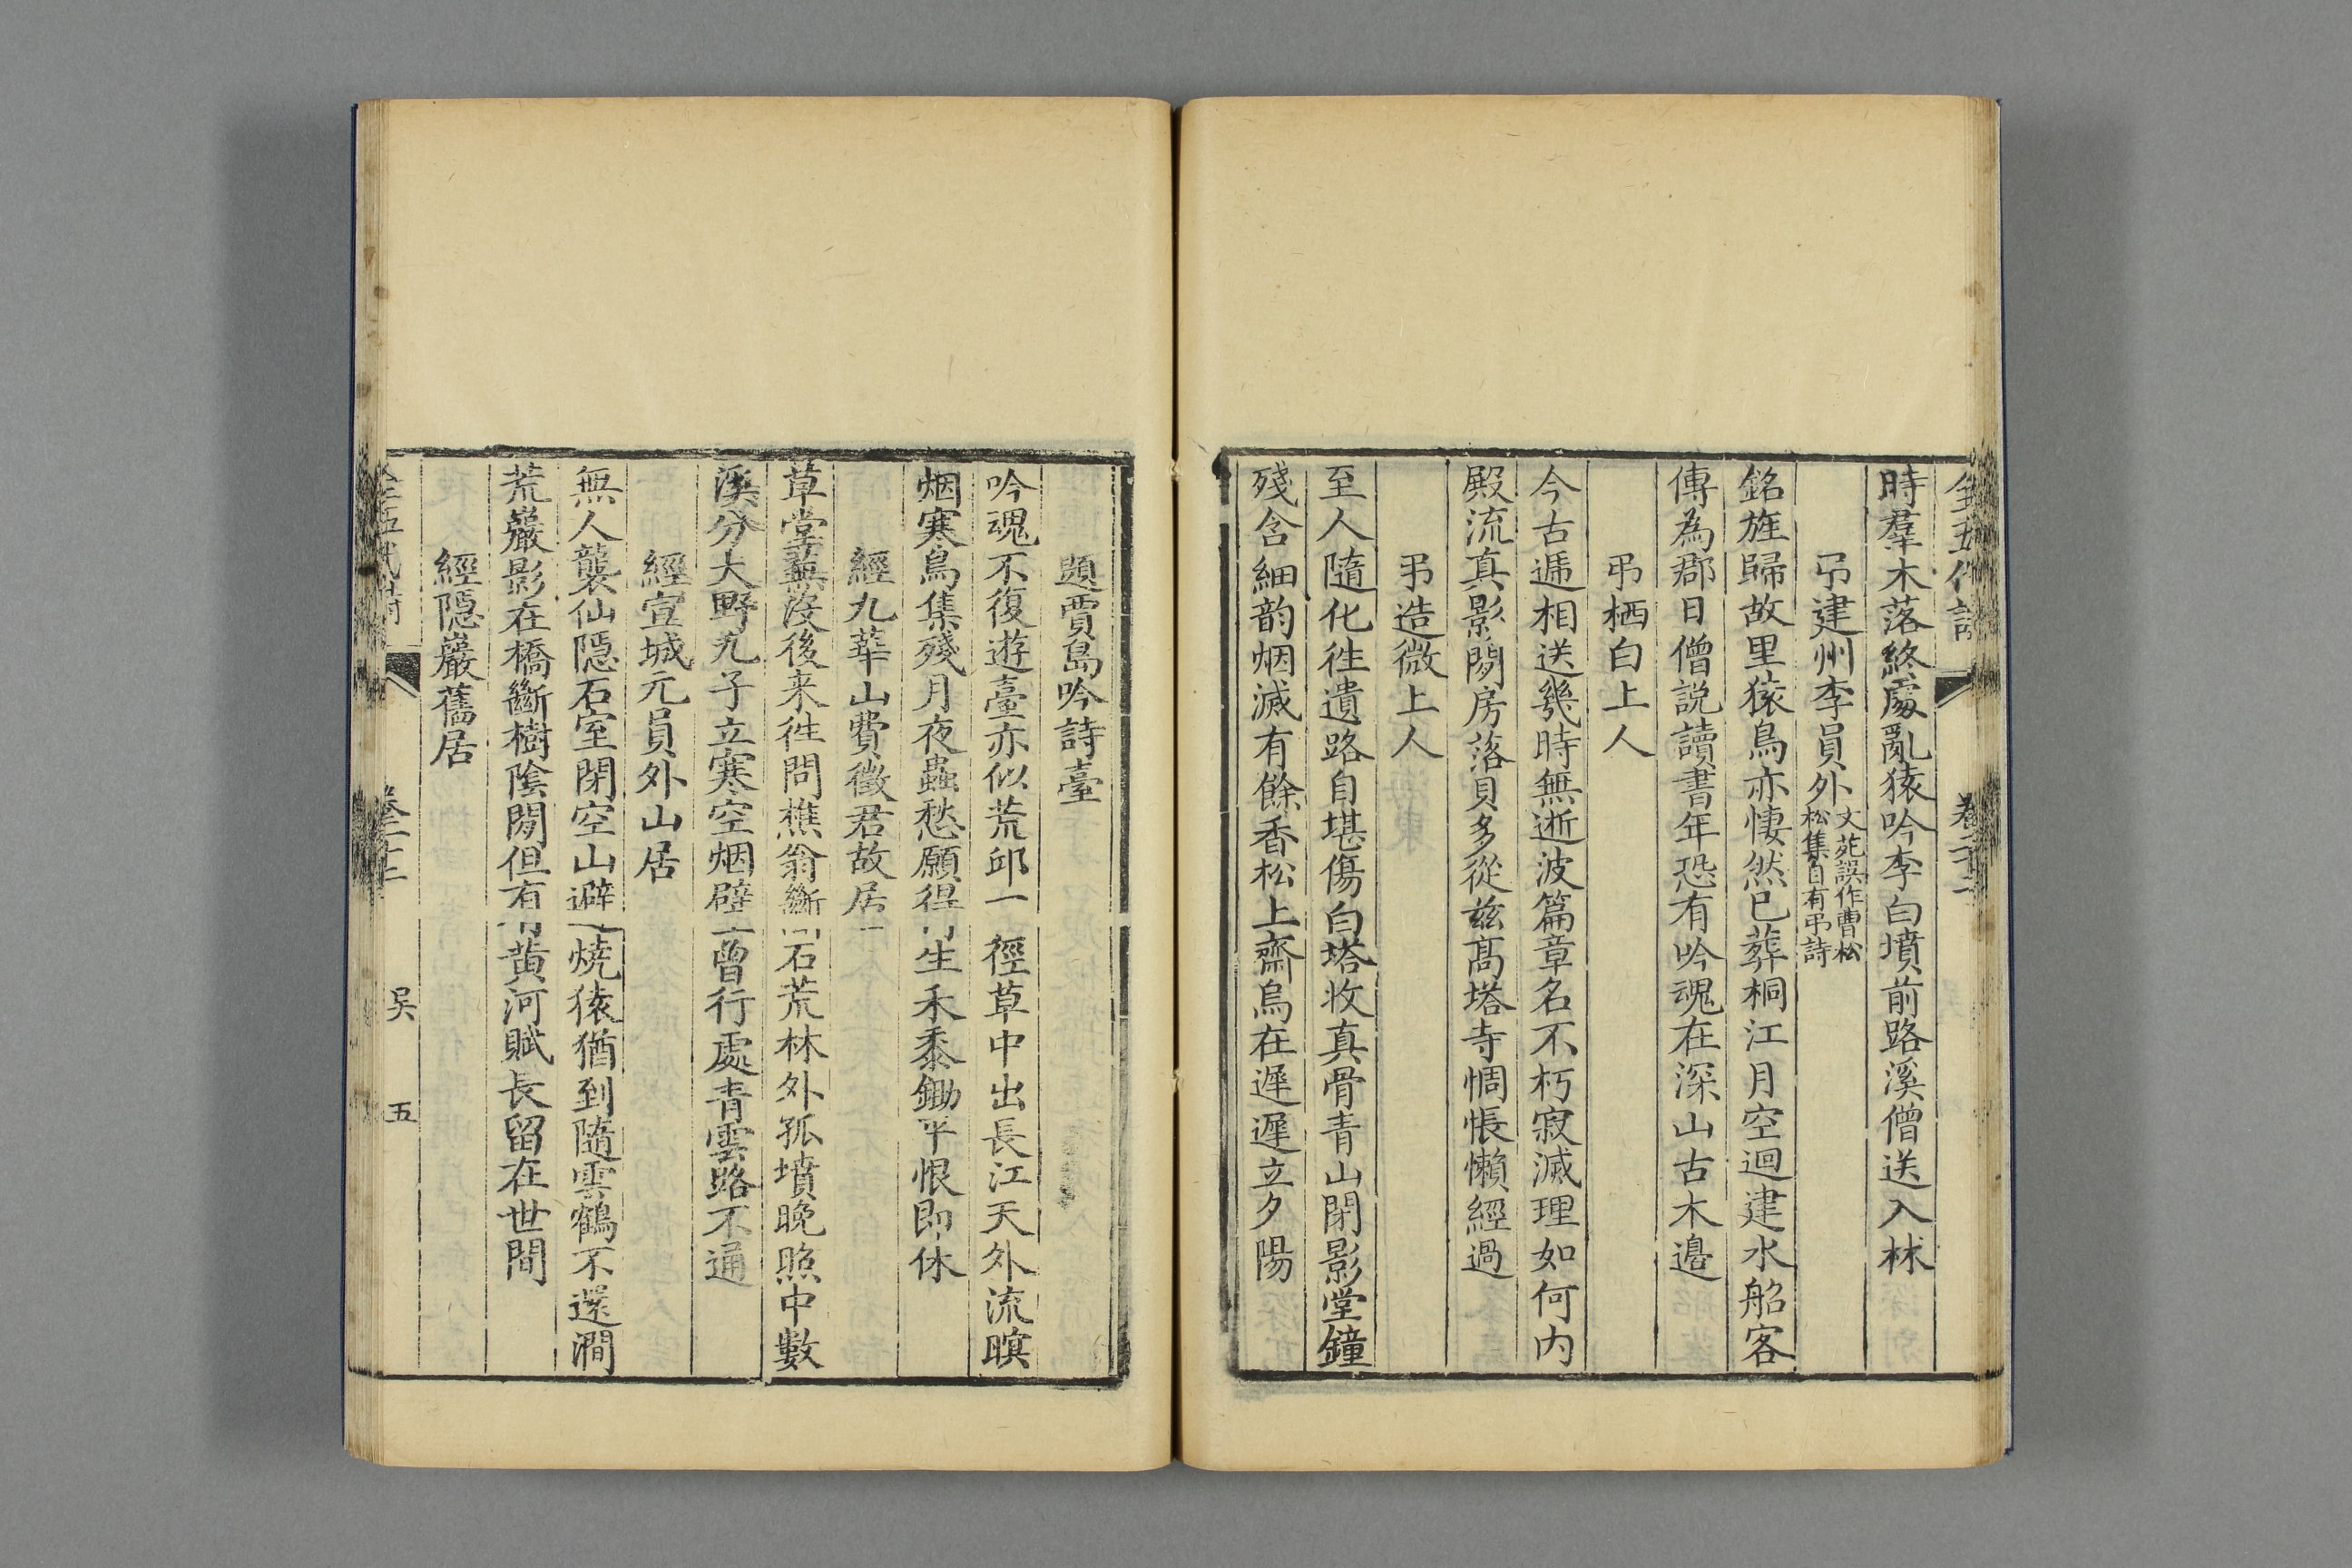 全五代詩 卷二十二
時羣木落終處亂猿吟李白墳前路溪僧送入林
弔建州李員外
文苑誤作曹松
松集自有弔詩
銘旌歸故里猿鳥亦悽然已葬桐江月空迴建水船客
傳為郡日僧説讀書年恐有吟魂在深山古木邊
弔栖白上人
今古遞相送幾時無逝波篇章名不朽寂滅理如何内
殿流真影閒房落貝多從兹髙塔寺惆悵懶經過
弔造微上人
至人隨化徃遺路自堪傷白塔收真骨青山閉影堂鐘
殘含細韵烟滅有餘香松上齋烏在遲遲立夕陽
題賈島吟詩臺
吟魂不復遊臺亦似荒邱一徑草中出長江天外流暝
烟寒鳥集殘月夜蟲愁願得生禾黍鋤平恨即休
經九華山費徵君故居
草堂蕪没後来徃問樵翁斷石荒林外孤墳晚照中數
溪分大野九子立寒空烟壁曾行處青雲路不通
經宣城元員外山居
無人襲仙隠石室閉空山避燒猿猶到隨雲鶴不還澗
荒巖影在橋斷樹陰閒但有黄河賦長留在世間
經隠巖舊居
全五代詩 卷二十二 吴 五